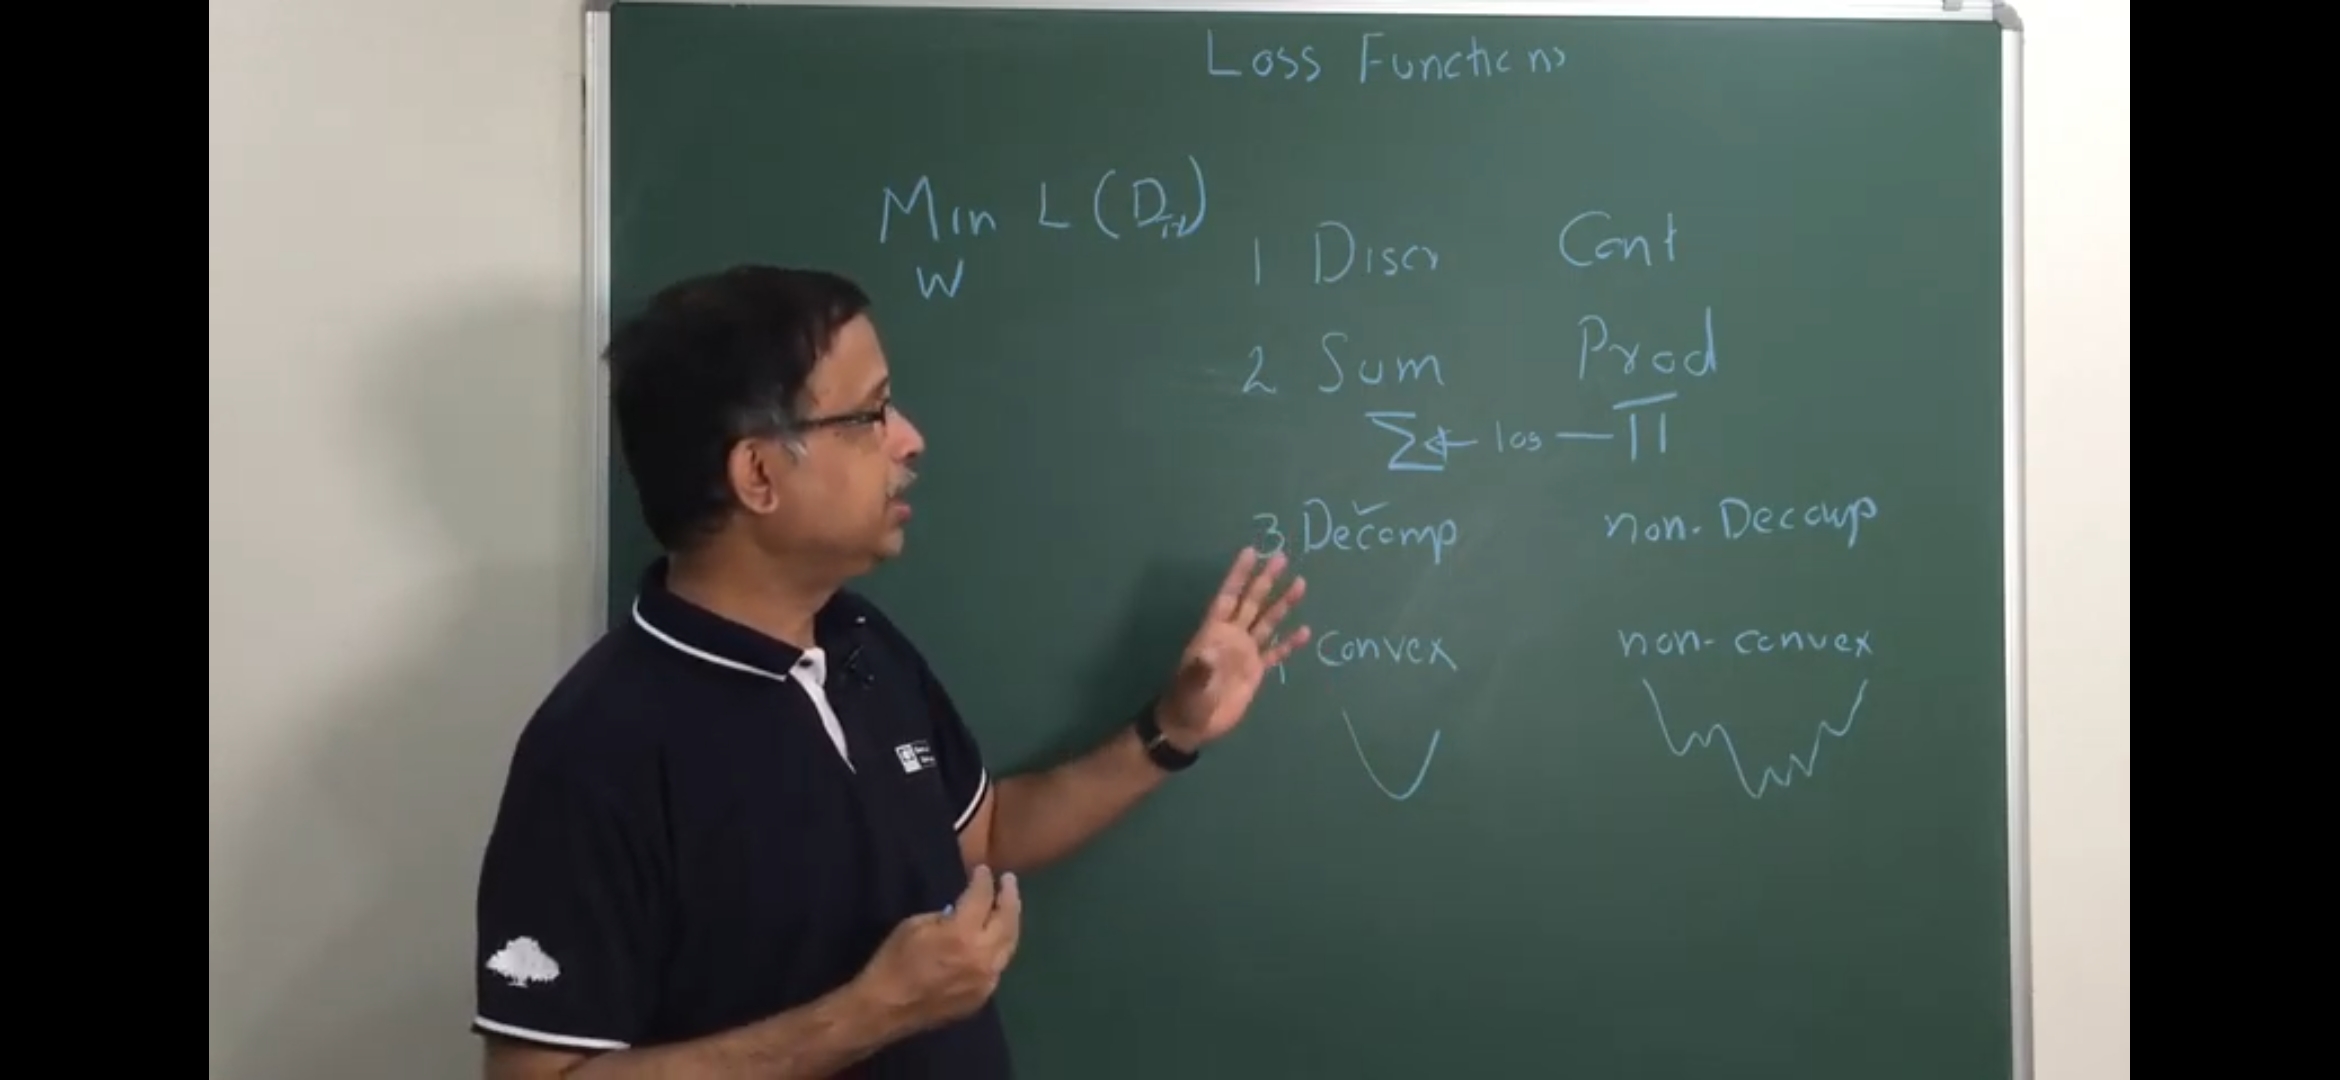 Loss Functions
Min L (D
W
1 Discr Cont
2 Sum Prod
Σ ← log — Π
3 Decomp non-Decomp
4 convex non-convex